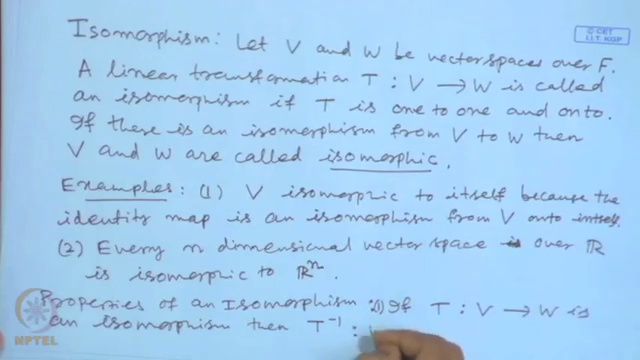 Isomorphism: Let V and W be vector spaces over F.
© CET
I.I.T. KGP
A linear transformation T : V → W is called
an isomorphism if T is one to one and onto.
If there is an isomorphism from V to W then
V and W are called isomorphic.
Examples: (1) V isomorphic to itself because the
identity map is an isomorphism from V onto itself.
(2) Every n dimensional vector space over ℝ
is isomorphic to ℝⁿ.
Properties of an Isomorphism: (1) If T : V → W is
an isomorphism then T⁻¹ :
NPTEL